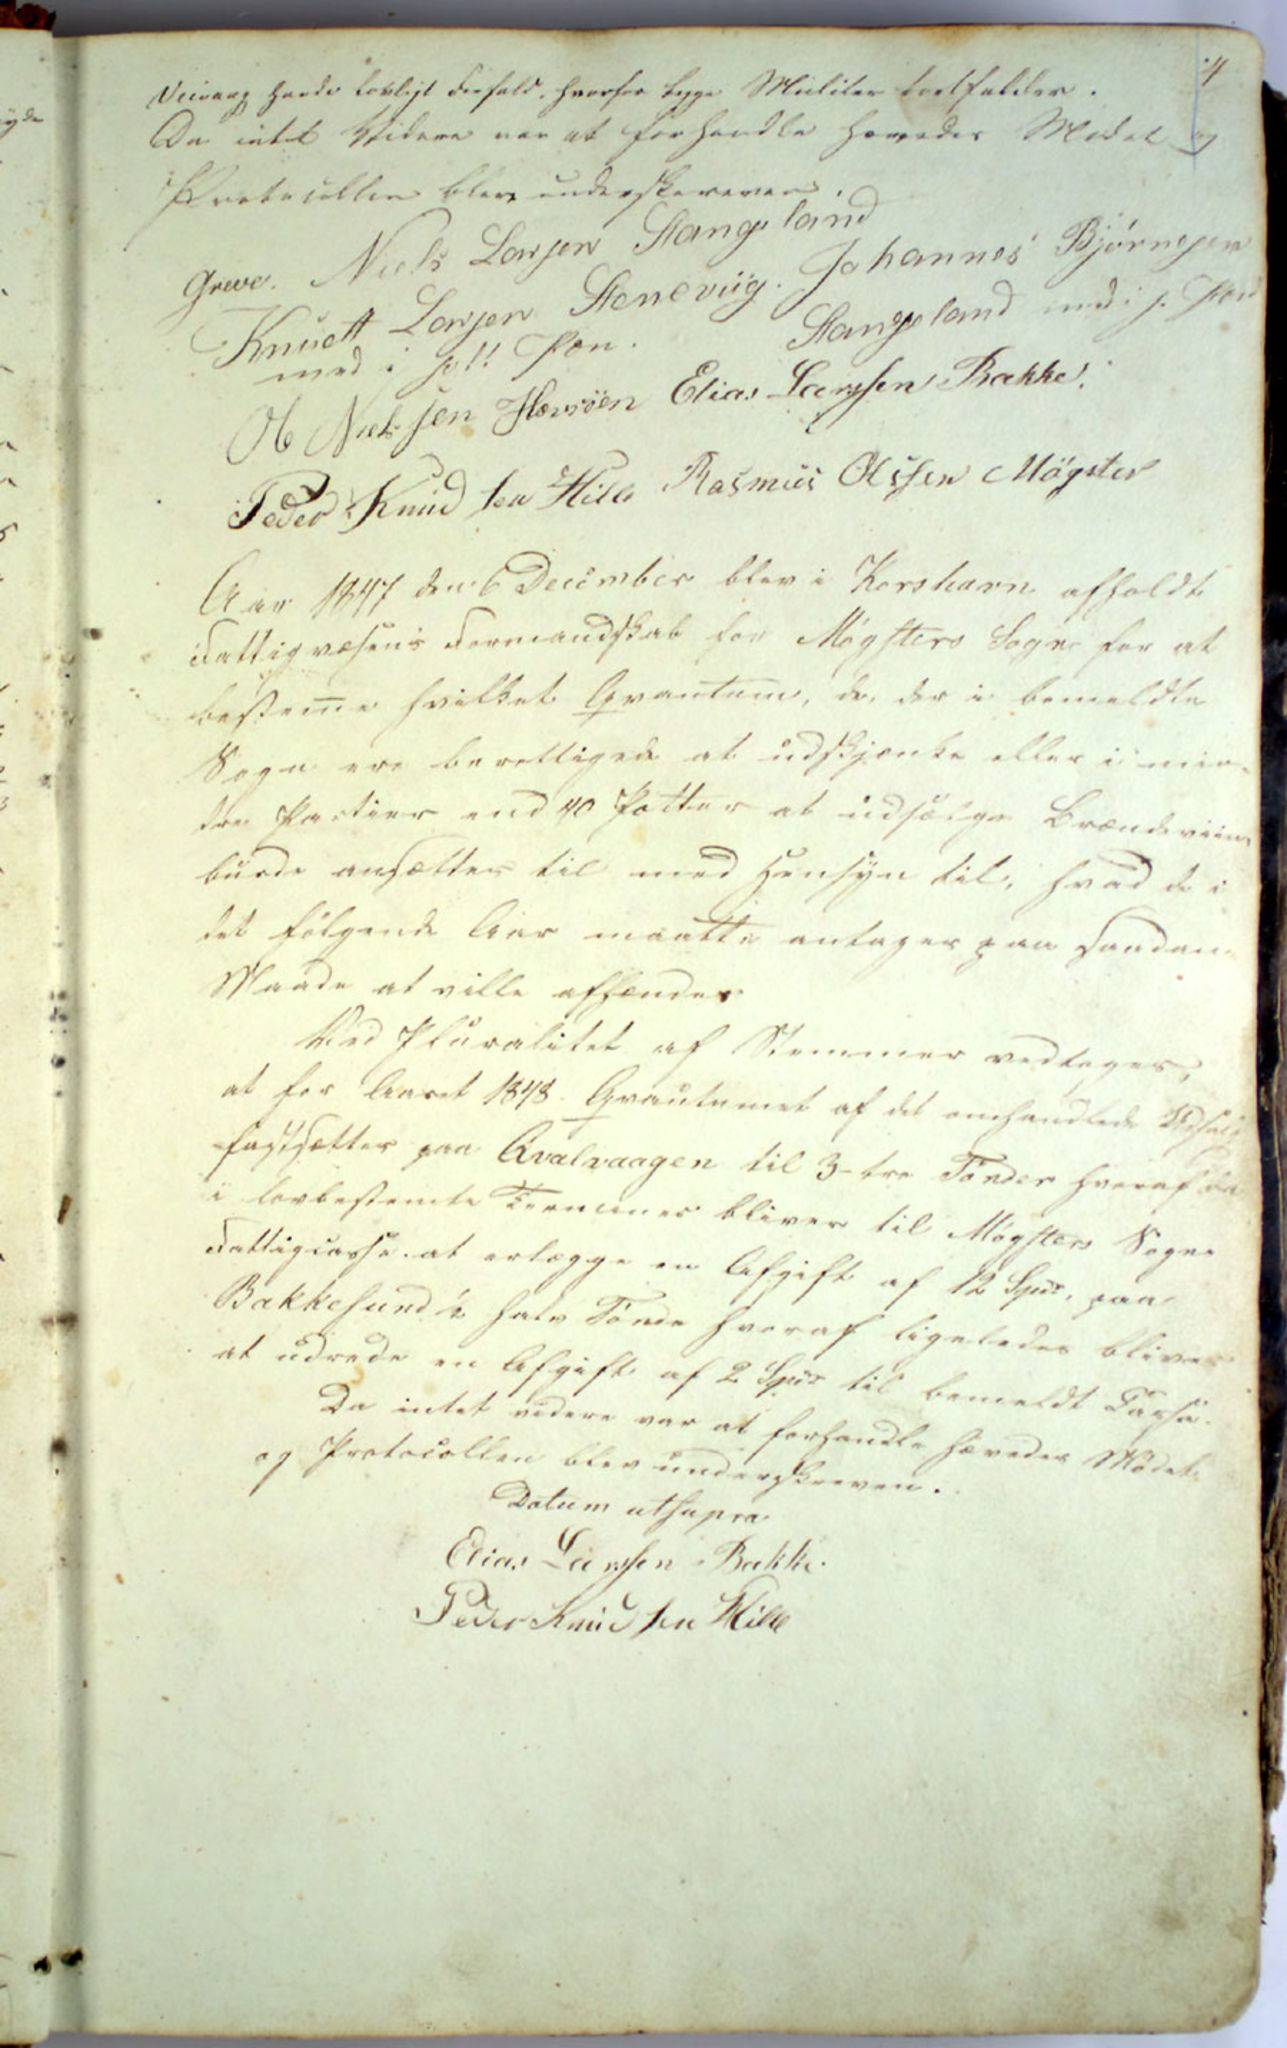 4
Veivæg havde lovligt Forfald, hvorfor begge Mulcter bortfalder.
Da intet Videre var at forhandle hævedes Mødet og
Protocollen blev underskreven.
Greve. Niels Larsen Stangeland
Knuett Larsen Stenevüg. Johannes Bjørnesen
med i p!! Pæn. Stangeland med i p. Pæn
Ole Nielsen Hevrøen Elias Larssen Bakke.
Peder Knudsen Hille Rasmus Olssen Møgster
Aar 1847 den 6 December blev i Korshavn afholdt
Fattigvæsens Formandskab for Møgsters Sogn for at
bestemme hvilket Qvantum, de, der i bemeldte
Sogn ere berettigede at udskjænke eller i min-
dre Partier end 40 Potter at udsælge Brændeviin,
burde ansættes til med Hensyn til, hvad de i
det følgende Aar maatte antages paa saadan
Maade at ville afhænde
Ved Pluralitet af Stemmer vedtoges,
at for Aaret 1848 Qvantumet af det omhandlede Udsalg
fastsættes paa Qvalvaagen til 3 - tre Tønder hvoraf
i lovbestemte Terminer bliver til Møgsters Sogns
Fattigcasse at erlægge en Afgift af 12 Spdr, paa
Bakkesund ½ halv Tønde hvoraf ligeledes bliver
at udrede en Afgift af 2 Spdr til bemeldt Casse.
Da intet videre var at forhandle hævedes Mødet
og Protocollen blev underskreven.
Datum utsupra
Elias Larssen Bakke.
Peder Knudsen Hille